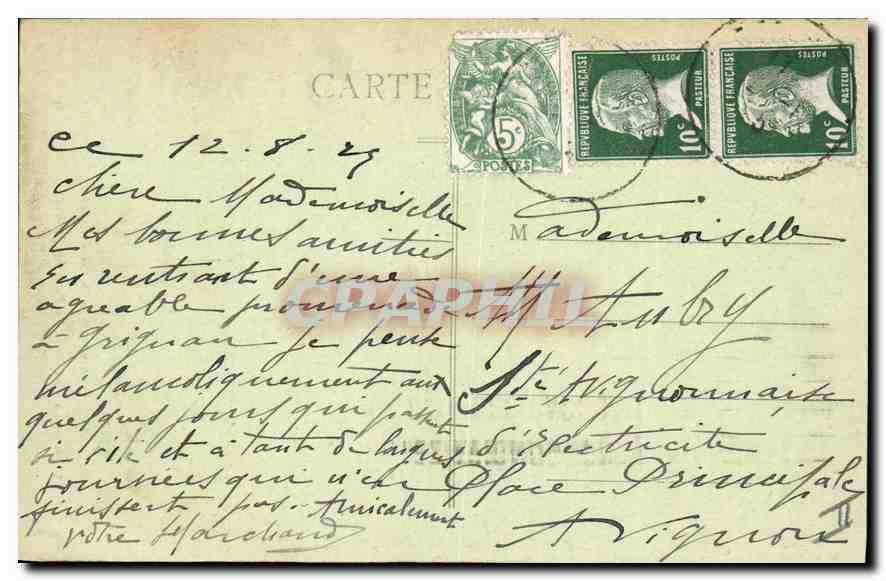 CARTE
5c
POSTES
REPVBLIQUE FRANÇAISE
POSTES
10c
PASTEUR
REPVBLIQUE FRANÇAISE
POSTES
10c
PASTEUR
ce 12.8.25
chère Mademoiselle
Mes bonnes amitiés
En rentrant d'une
agreable promenade
à Grignan je pense
mélancoliquement aux
quelques jours qui passent
si vite et à tant de longues
journées qui n'en
finissent pas. Amicalement
votre Marchand
Mademoiselle
Aubry
Sté Avignonnaise
d'Electricité
Place Principale
Avignon
CPAPHIL